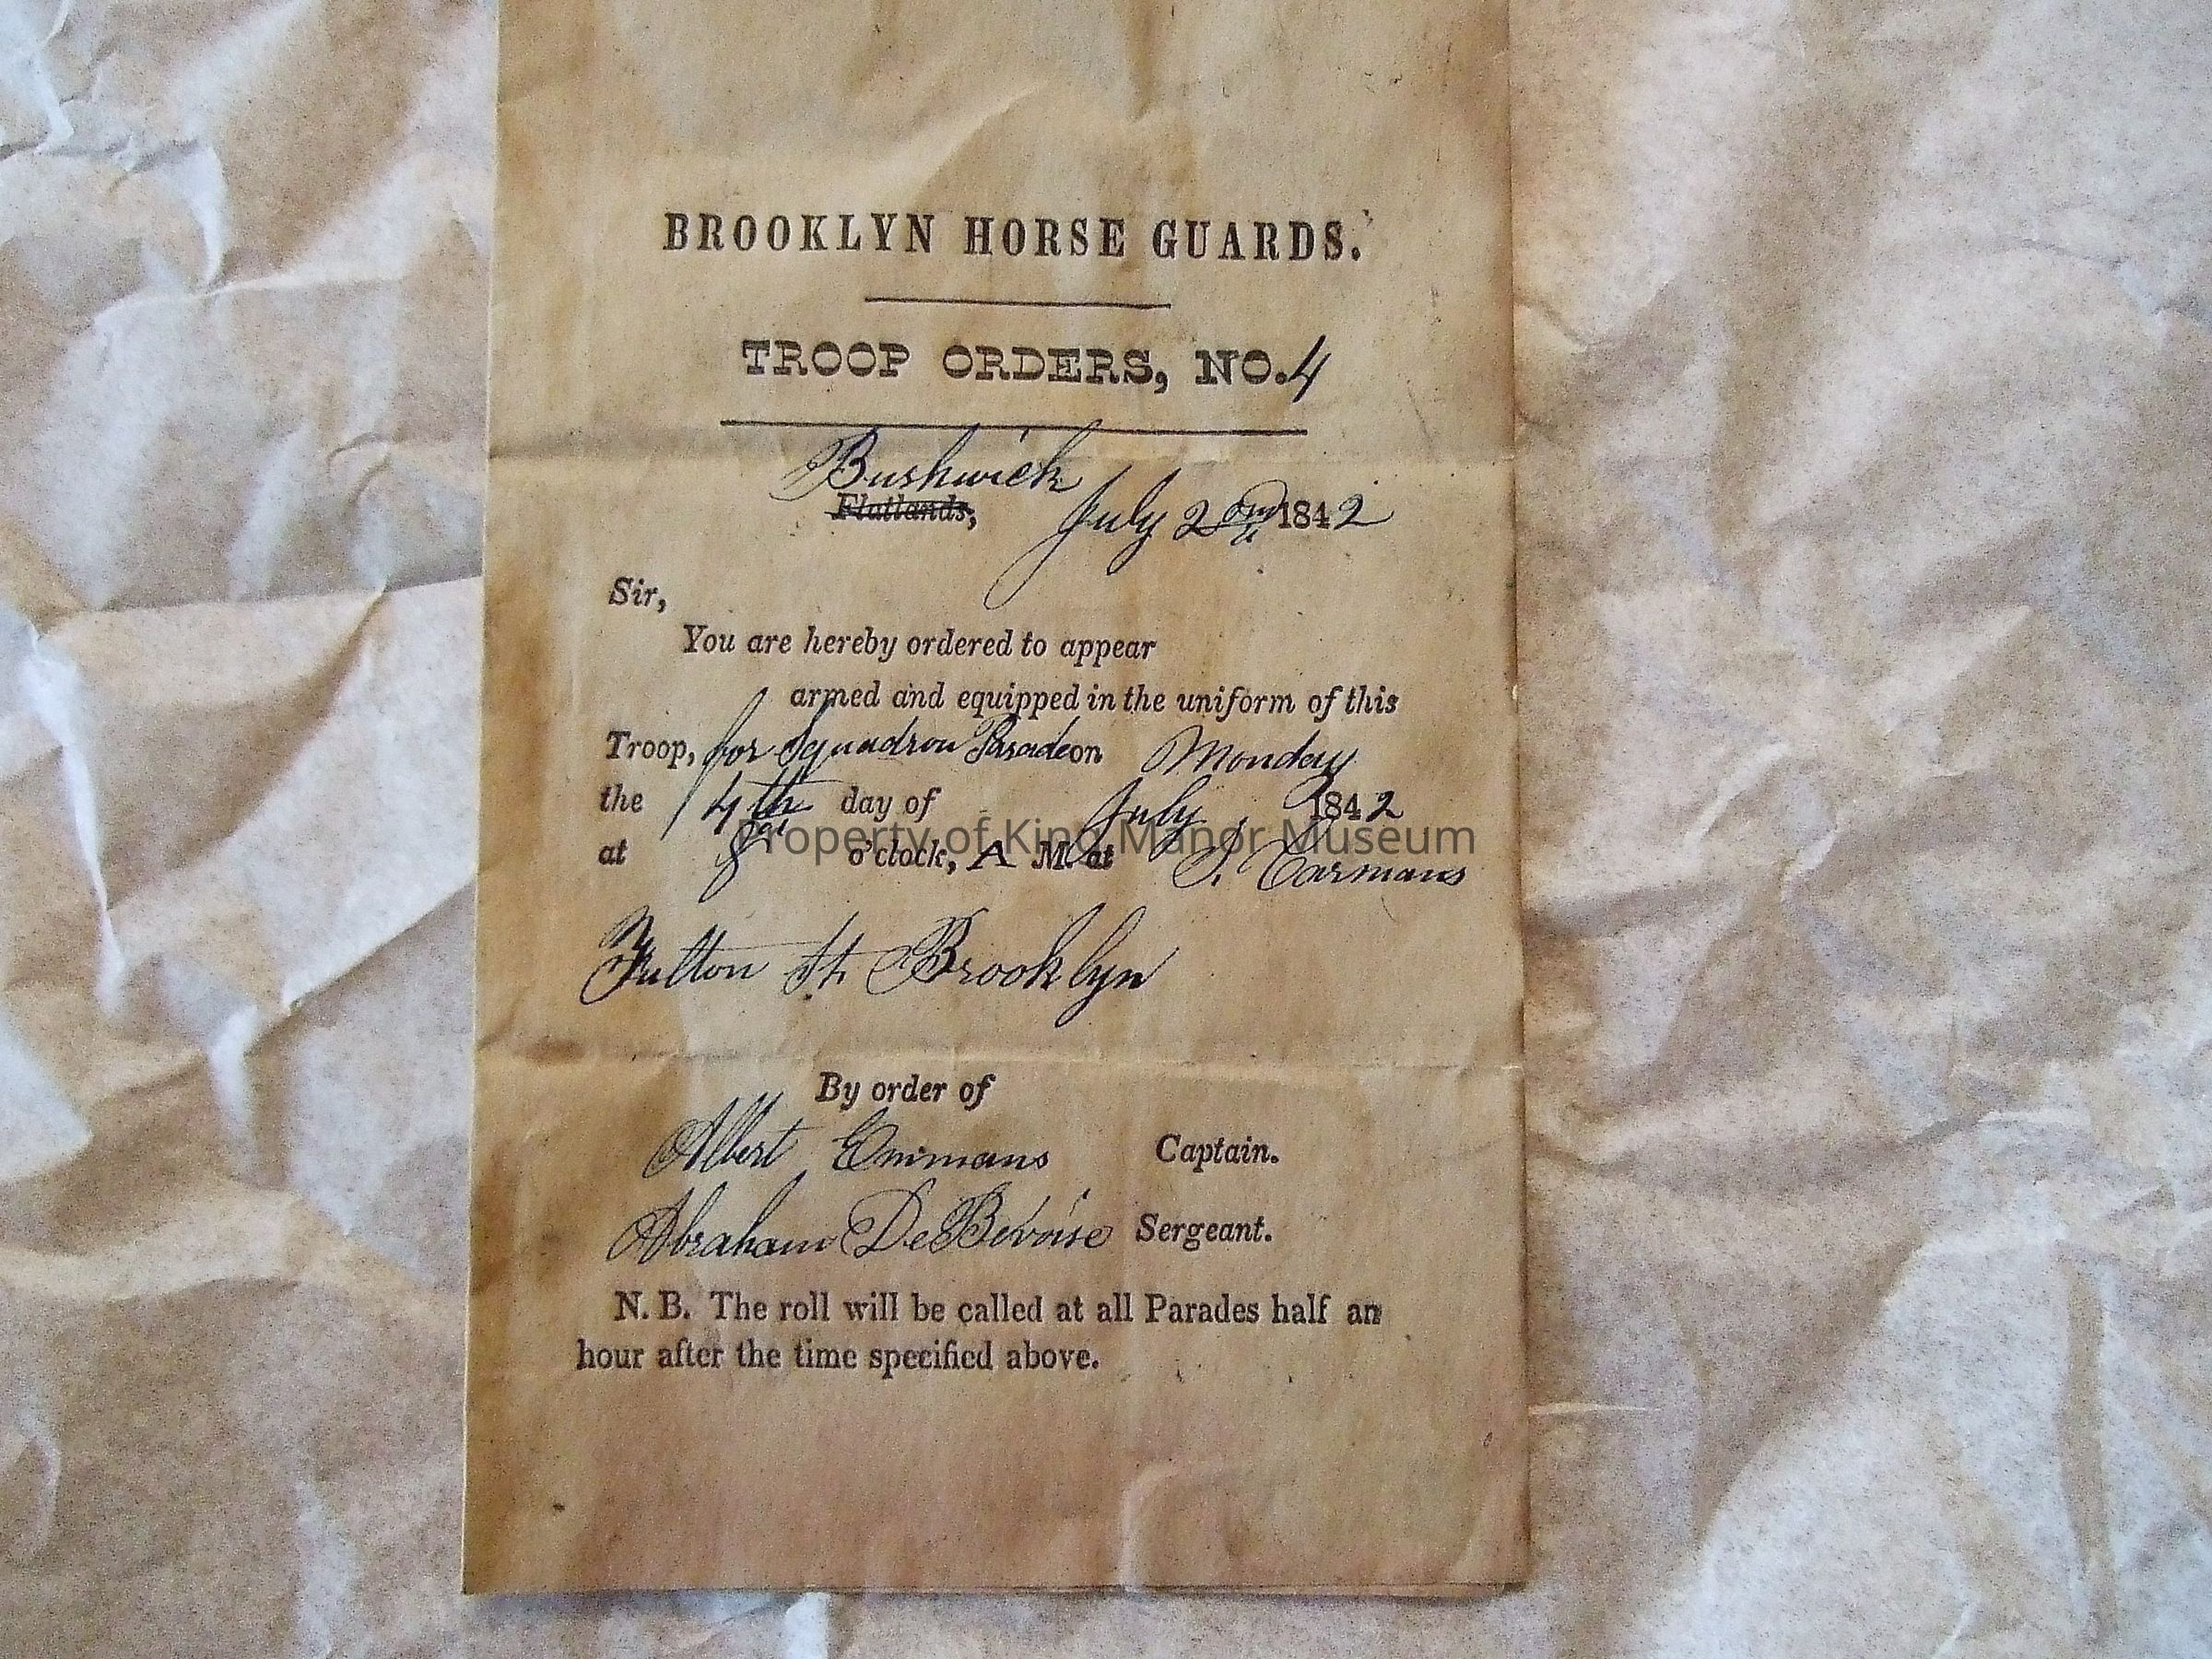 BROOKLYN HORSE GUARDS.
TROOP ORDERS, NO. 4
Bushwick
Flatlands, July 2nd 1842
Sir,
You are hereby ordered to appear
armed and equipped in the uniform of this
Troop, for Squadron Parade on Monday
the 4th day of July 1842
at 8 o'clock, A M. at S. Carmans
Property of King Manor Museum
Fulton St. Brooklyn
By order of
Albert Emmans Captain.
Abraham DeBevoise Sergeant.
N. B. The roll will be called at all Parades half an
hour after the time specified above.